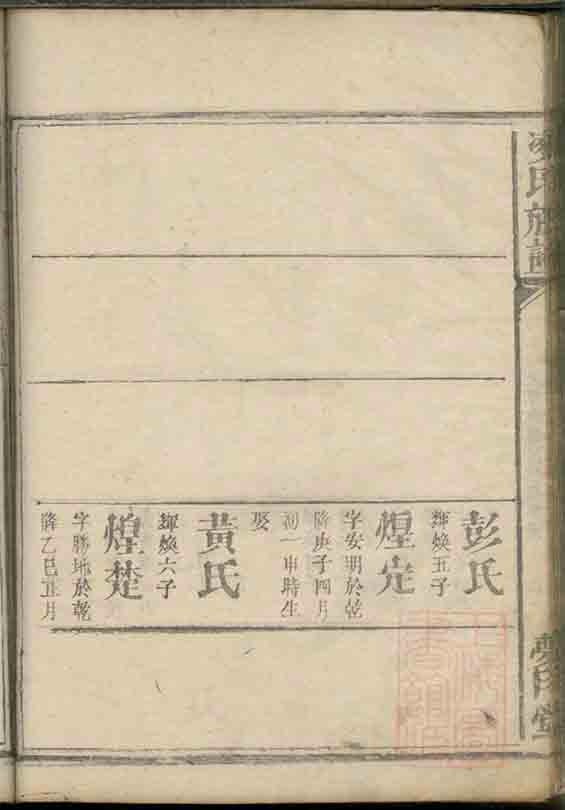 氏族譜
彭氏
輝煥五子
煌先
字安明於乾
隆庚子四月
初一申時生
娶
黃氏
輝煥六子
煌楚
字勝地於乾
隆乙巳正月